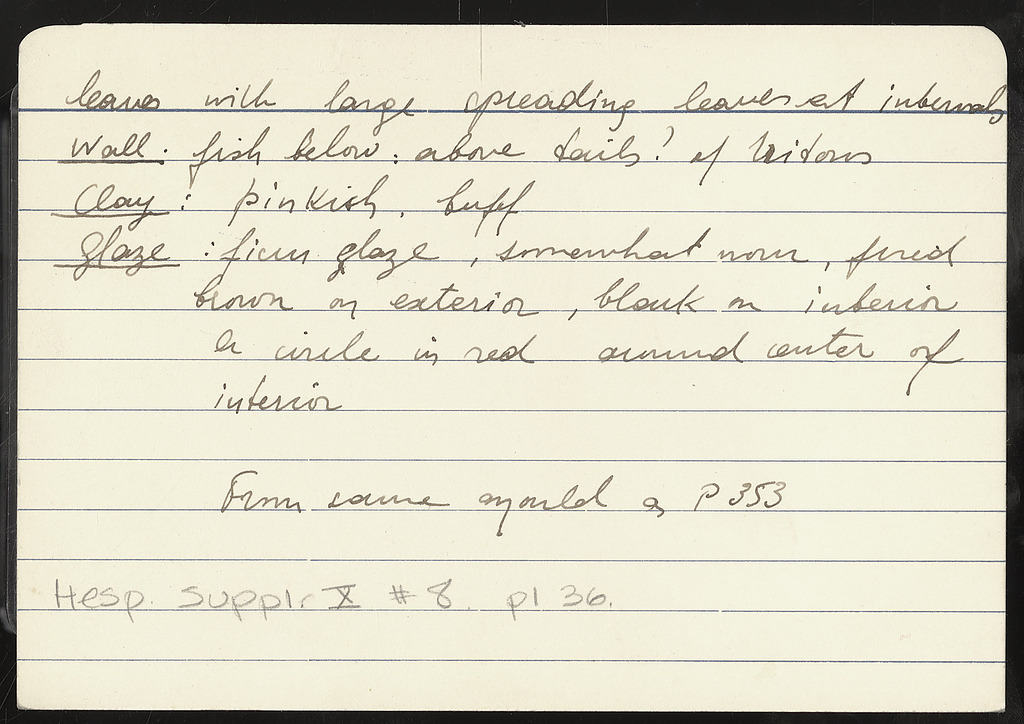 leaves with large spreading leaves at intervals
Wall: fish below: above tails? of tritons
Clay: pinkish, buff
Glaze: firm glaze, somewhat worn, fired
brown on exterior, black on interior
a circle in red around center of
interior
From same mould as P 353
Hesp. Suppl. X # 8. pl 36.